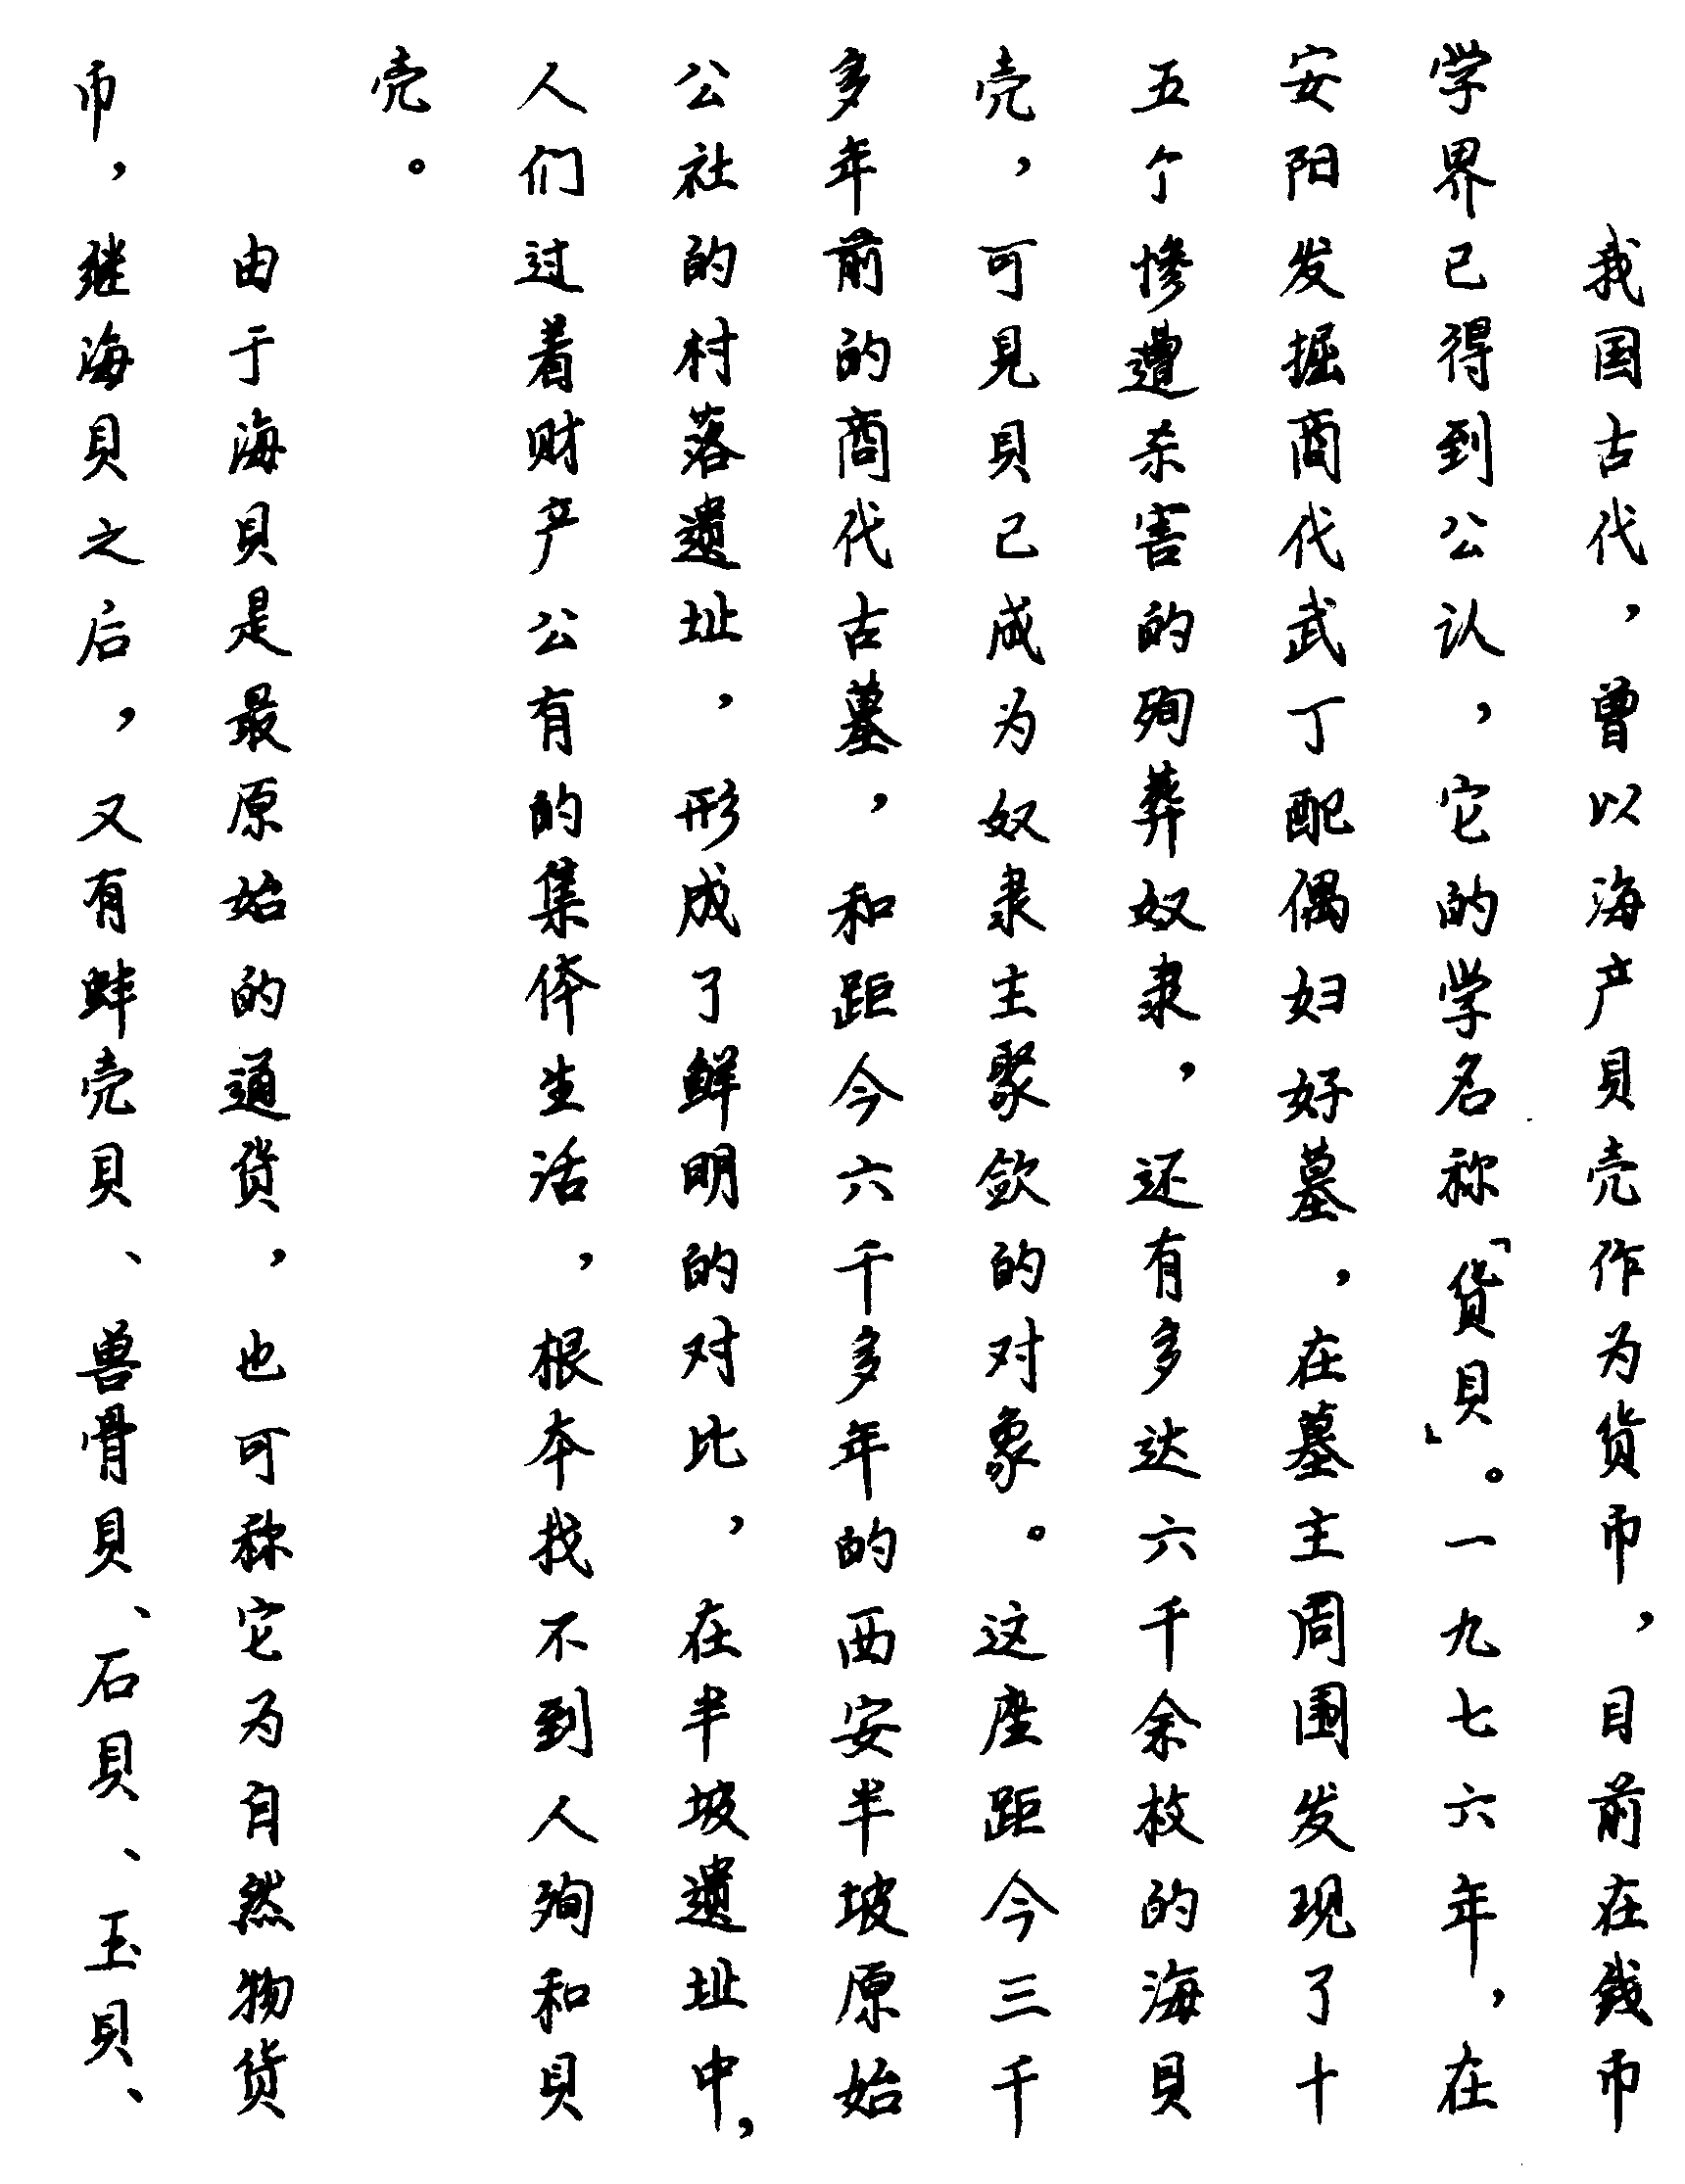 我国古代，曾以海产貝壳作为货币，目前在钱币
学界已得到公认，它的学名称「货貝」。一九七六年，在
安阳发掘商代武丁配偶妇好墓，在墓主周围发现了十
五个惨遭杀害的殉葬奴隶，还有多达六千余枚的海貝
壳，可見貝已成为奴隶主聚敛的对象。这座距今三千
多年前的商代古墓，和距今六千多年的西安半坡原始
公社的村落遗址，形成了鲜明的对比，在半坡遗址中，
人们过着财产公有的集体生活，根本找不到人殉和貝
壳。
由于海貝是最原始的通货，也可称它为自然物货
币，继海貝之后，又有蚌壳貝、兽骨貝、石貝、玉貝、